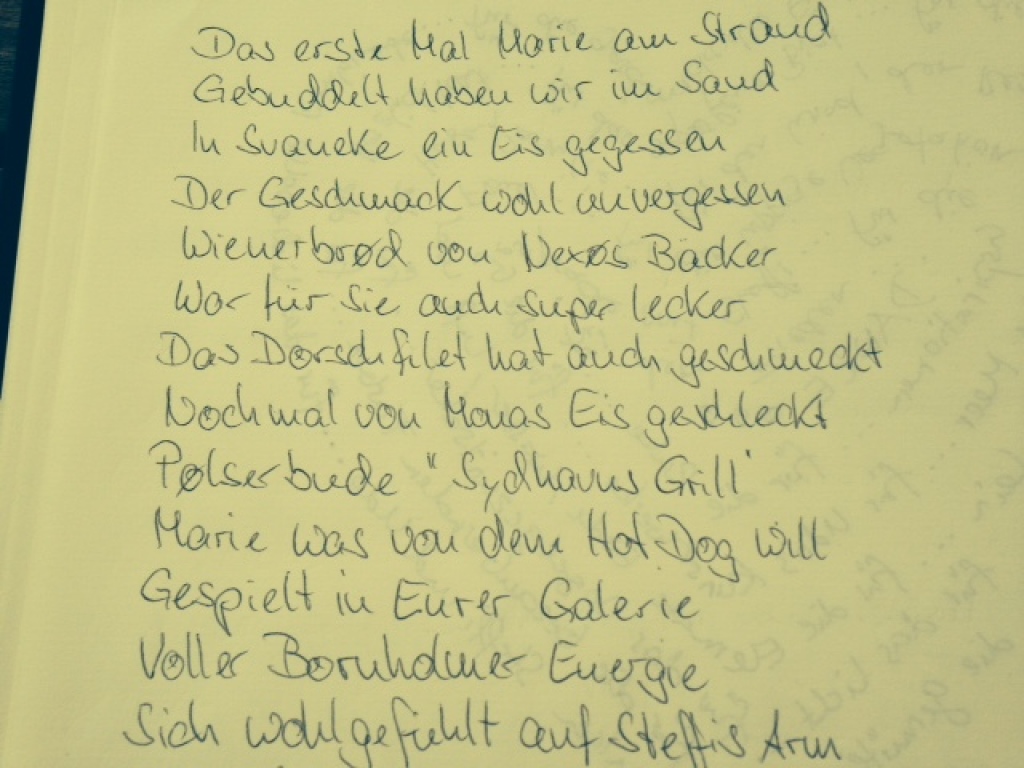 Das erste Mal Marie am Strand
Gebuddelt haben wir im Sand
In Svaneke ein Eis gegessen
Der Geschmack wohl unvergessen
Wienerbrød von Nexøs Bäcker
War für Sie auch super lecker
Das Dorschfilet hat auch geschmeckt
Nochmal von Monas Eis geschleckt
Pølserbude "Sydhavns Grill"
Marie was von dem Hot Dog will
Gespielt in Eurer Galerie
Voller Bornholmer Energie
Sich wohlgefühlt auf Steffis Arm